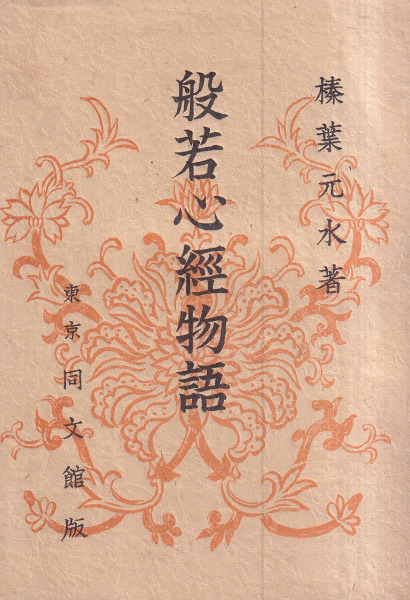 榛葉元水著
般若心經物語
東京同文館版